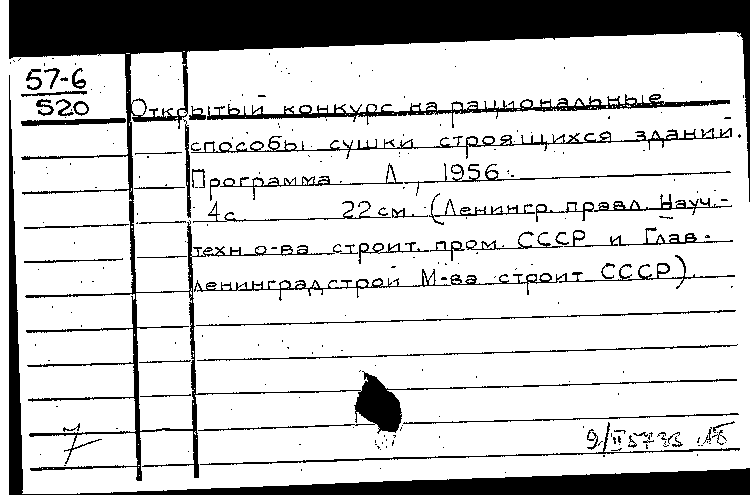 57-6
520
Открытый конкурс на рациональные
способы сушки строящихся зданий.
Программа. Л., 1956.
4с. 22 см. (Ленингр. правл. Науч.-
техн о-ва строит. пром. СССР и Глав-
ленинградстрой М-ва строит СССР).
7